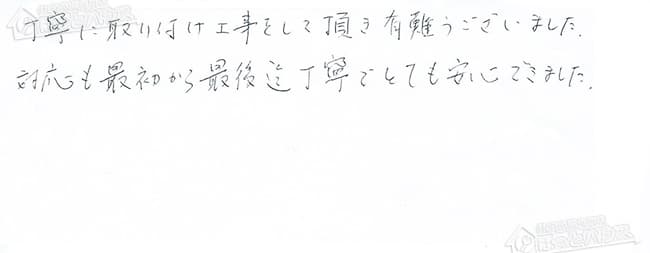 丁寧に取り付け工事をして頂き有難うございました.
対応も最初から最後迄丁寧でとても安心できました.